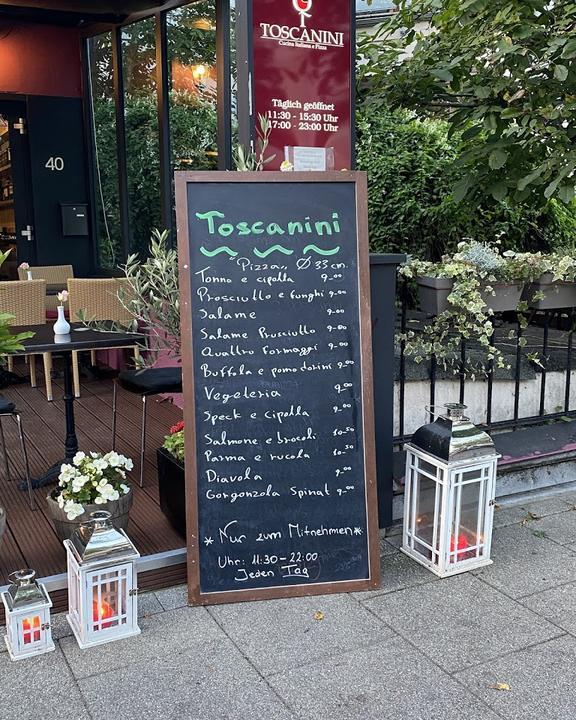 TOSCANINI
Cucina Italiana e Pizza
Täglich geöffnet
11:30 - 15:30 Uhr
17:00 - 23:00 Uhr
40
Toscanini
"Pizza„ Ø 33 cm.
Tonno e cipolla 9-00
Prosciutto e funghi 9-00
Salame 9-00
Salame Prusciutto 9-00
Quattro Formaggi 9-00
Buffola e pomodorini 9-00
Vegeteria 9-00
Speck e cipolla 9-00
Salmone e brocoli 10-50
Parma e rucola 10-50
Diavola 9-00
Gorgonzola Spinat 9-00
* Nur zum Mitnehmen *
Uhr: 11:30 - 22:00
Jeden Tag